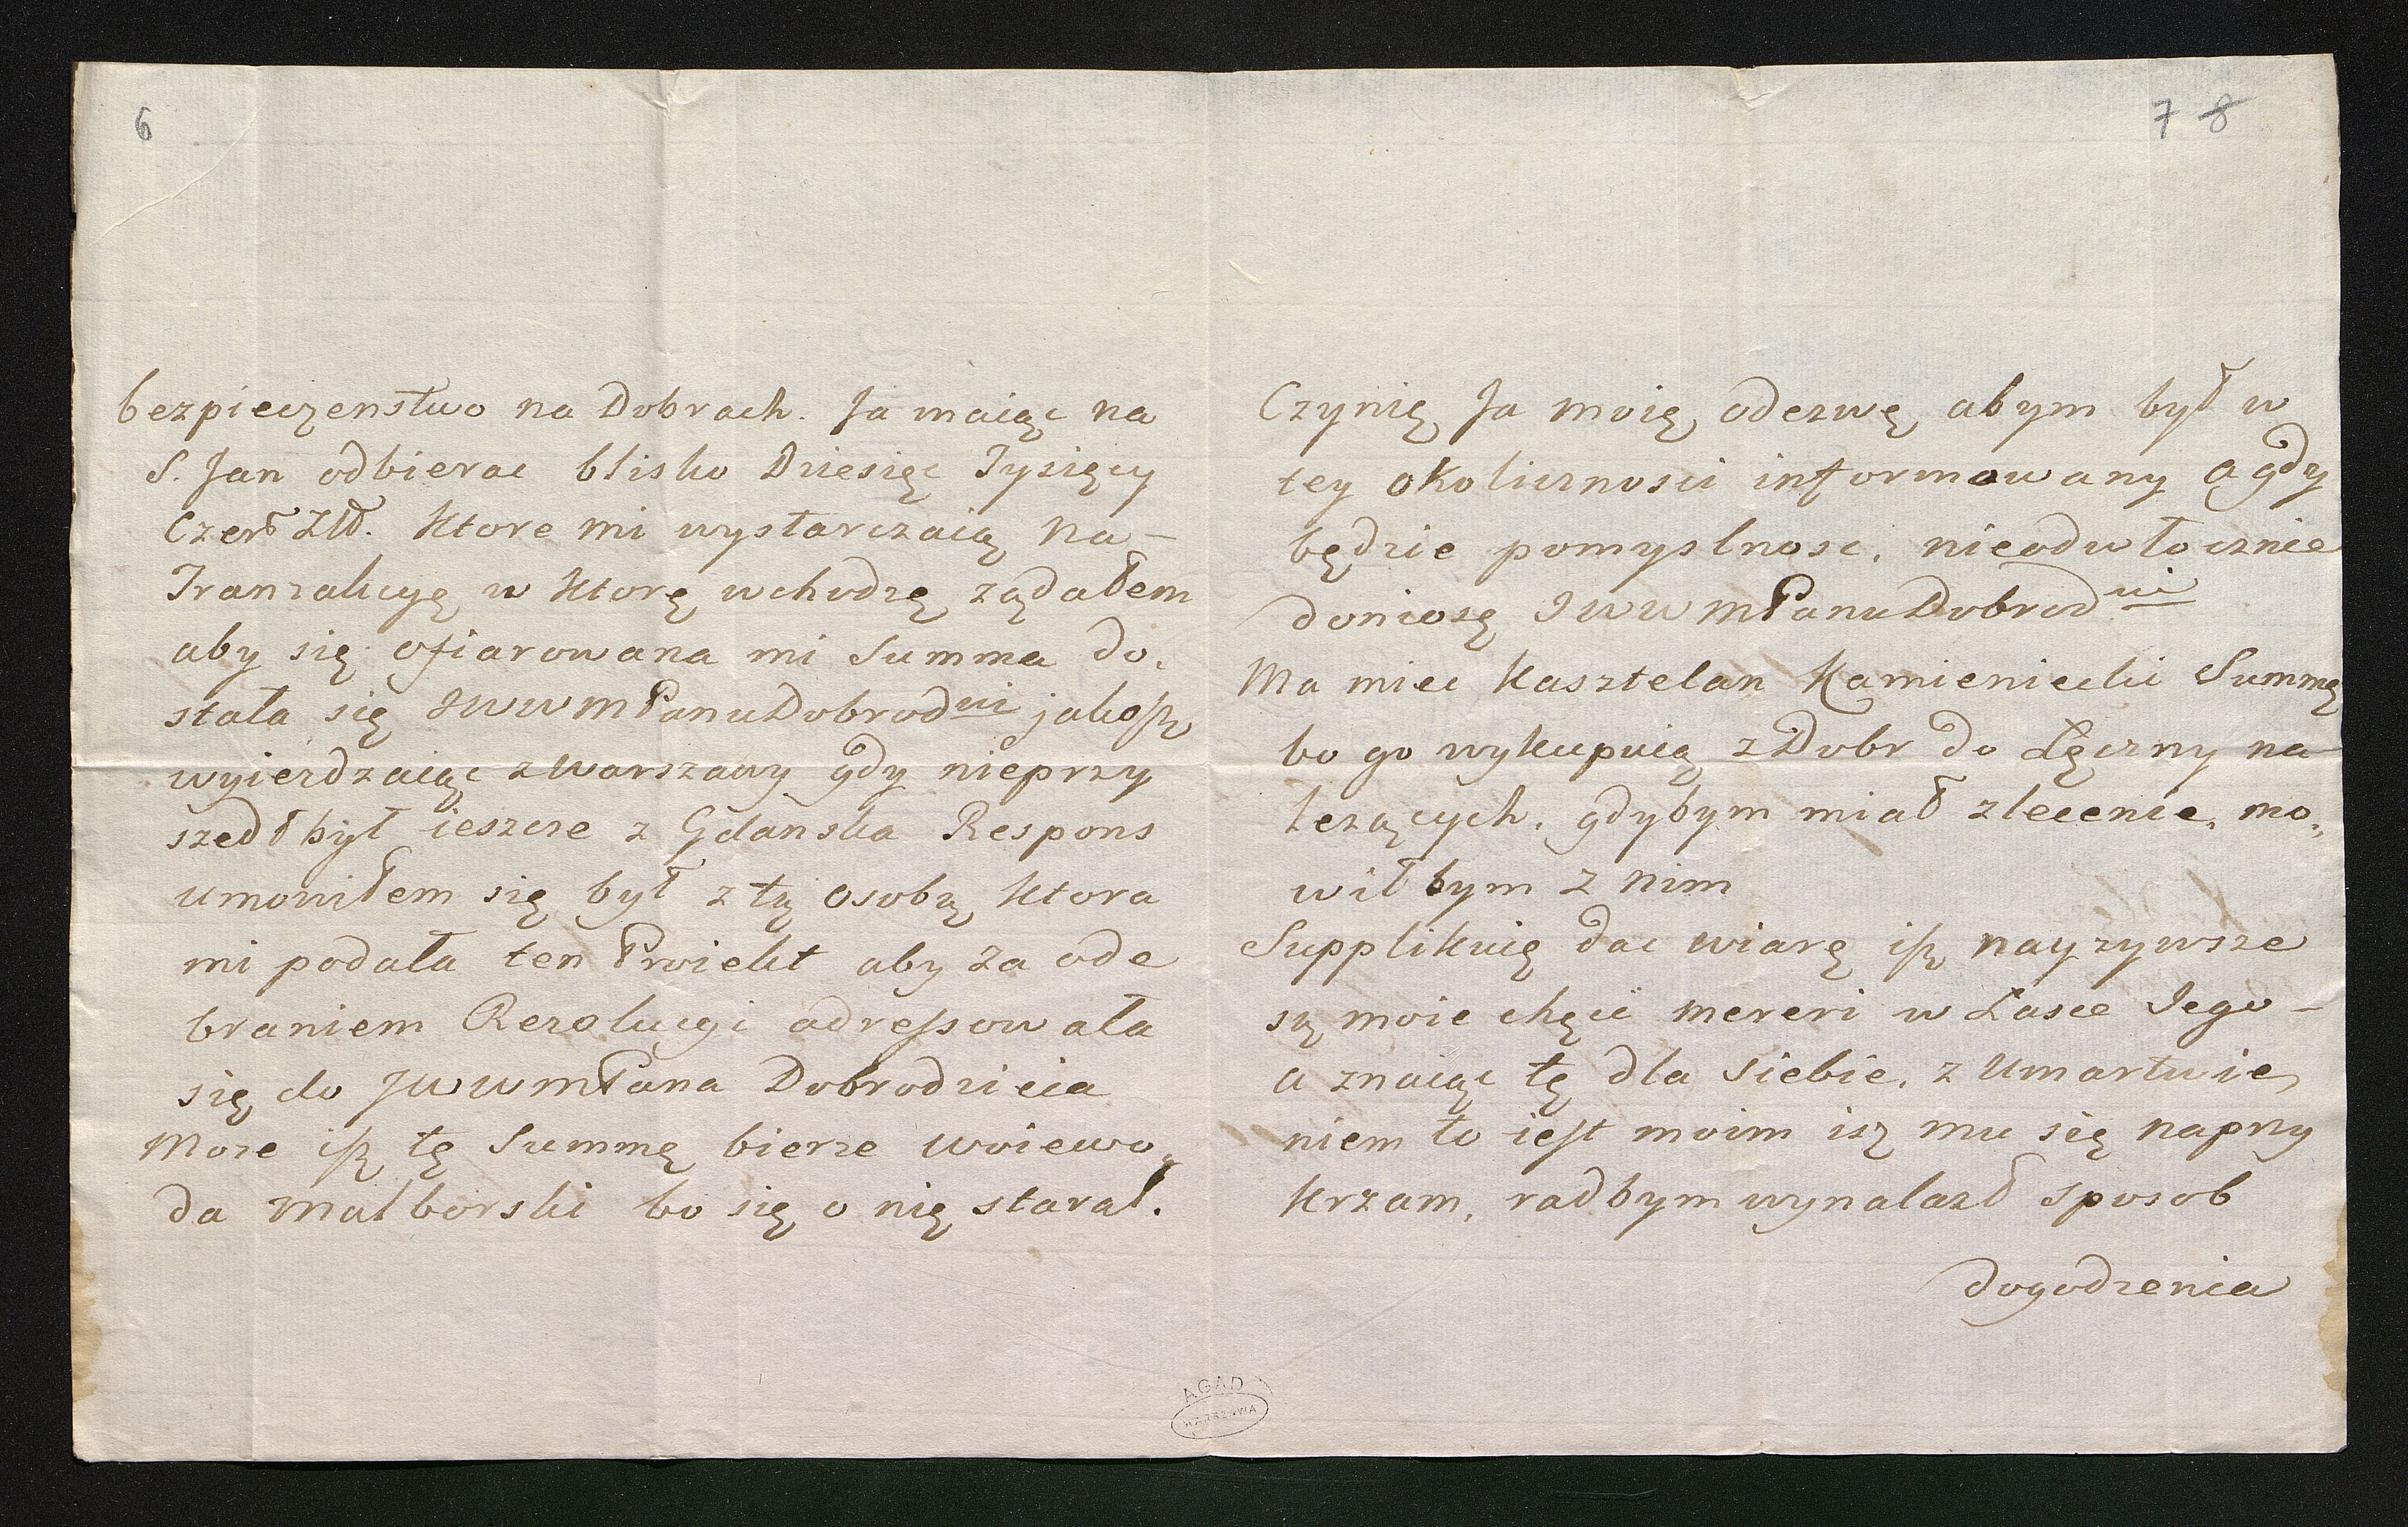 6
bezpieczenstwo na Dobrach. Ja maiąc na
S. Jan odbierac blisko Dziesięc Tysięcy
Czerł Złł. Ktore mi wystarczaią na-
Tranzakcyę w Ktorę wchodzę ządałem
aby się ofiarowana mi Summa do,
stała się JWWMPanuDobrodwi jakosz
wyiezdzaiąc zwarszawy gdy nieprzy
szedł był ieszcze z Gdanska Respons
umowiłem się był z tą osobą Ktora
mi podała ten Proiekt aby za ode
braniem Rezolucyi adressowała
się do JWWMPana Dobrodzieia
Moze isz tę Summę bierze woiewo,
da Malborski bo się o nię starał.
7 8
Czynię Ja moię odezwę abym był w
tey okolicznosci informowany a gdy
będzie pomyslnosc, nieodwłocznie
doniosę JWWMPanuDobrodwi
Ma miec Kasztelan Kamieniecki Summę
bo go wykupuią zDobr do Łęczny na
lezących, gdybym miał zlecenie, mo,
wiłbym z nim
Supplikuię dac wiarę isz nayzywsze
są moie chęci mereri w Łasce Jego-
a znaiąc tę dla siebie, z Umartwie,
niem to iest moim isz mu się naprzy
krzam, radbym wynalazł sposob
dogodzenia
AGAD
WARSZAWA